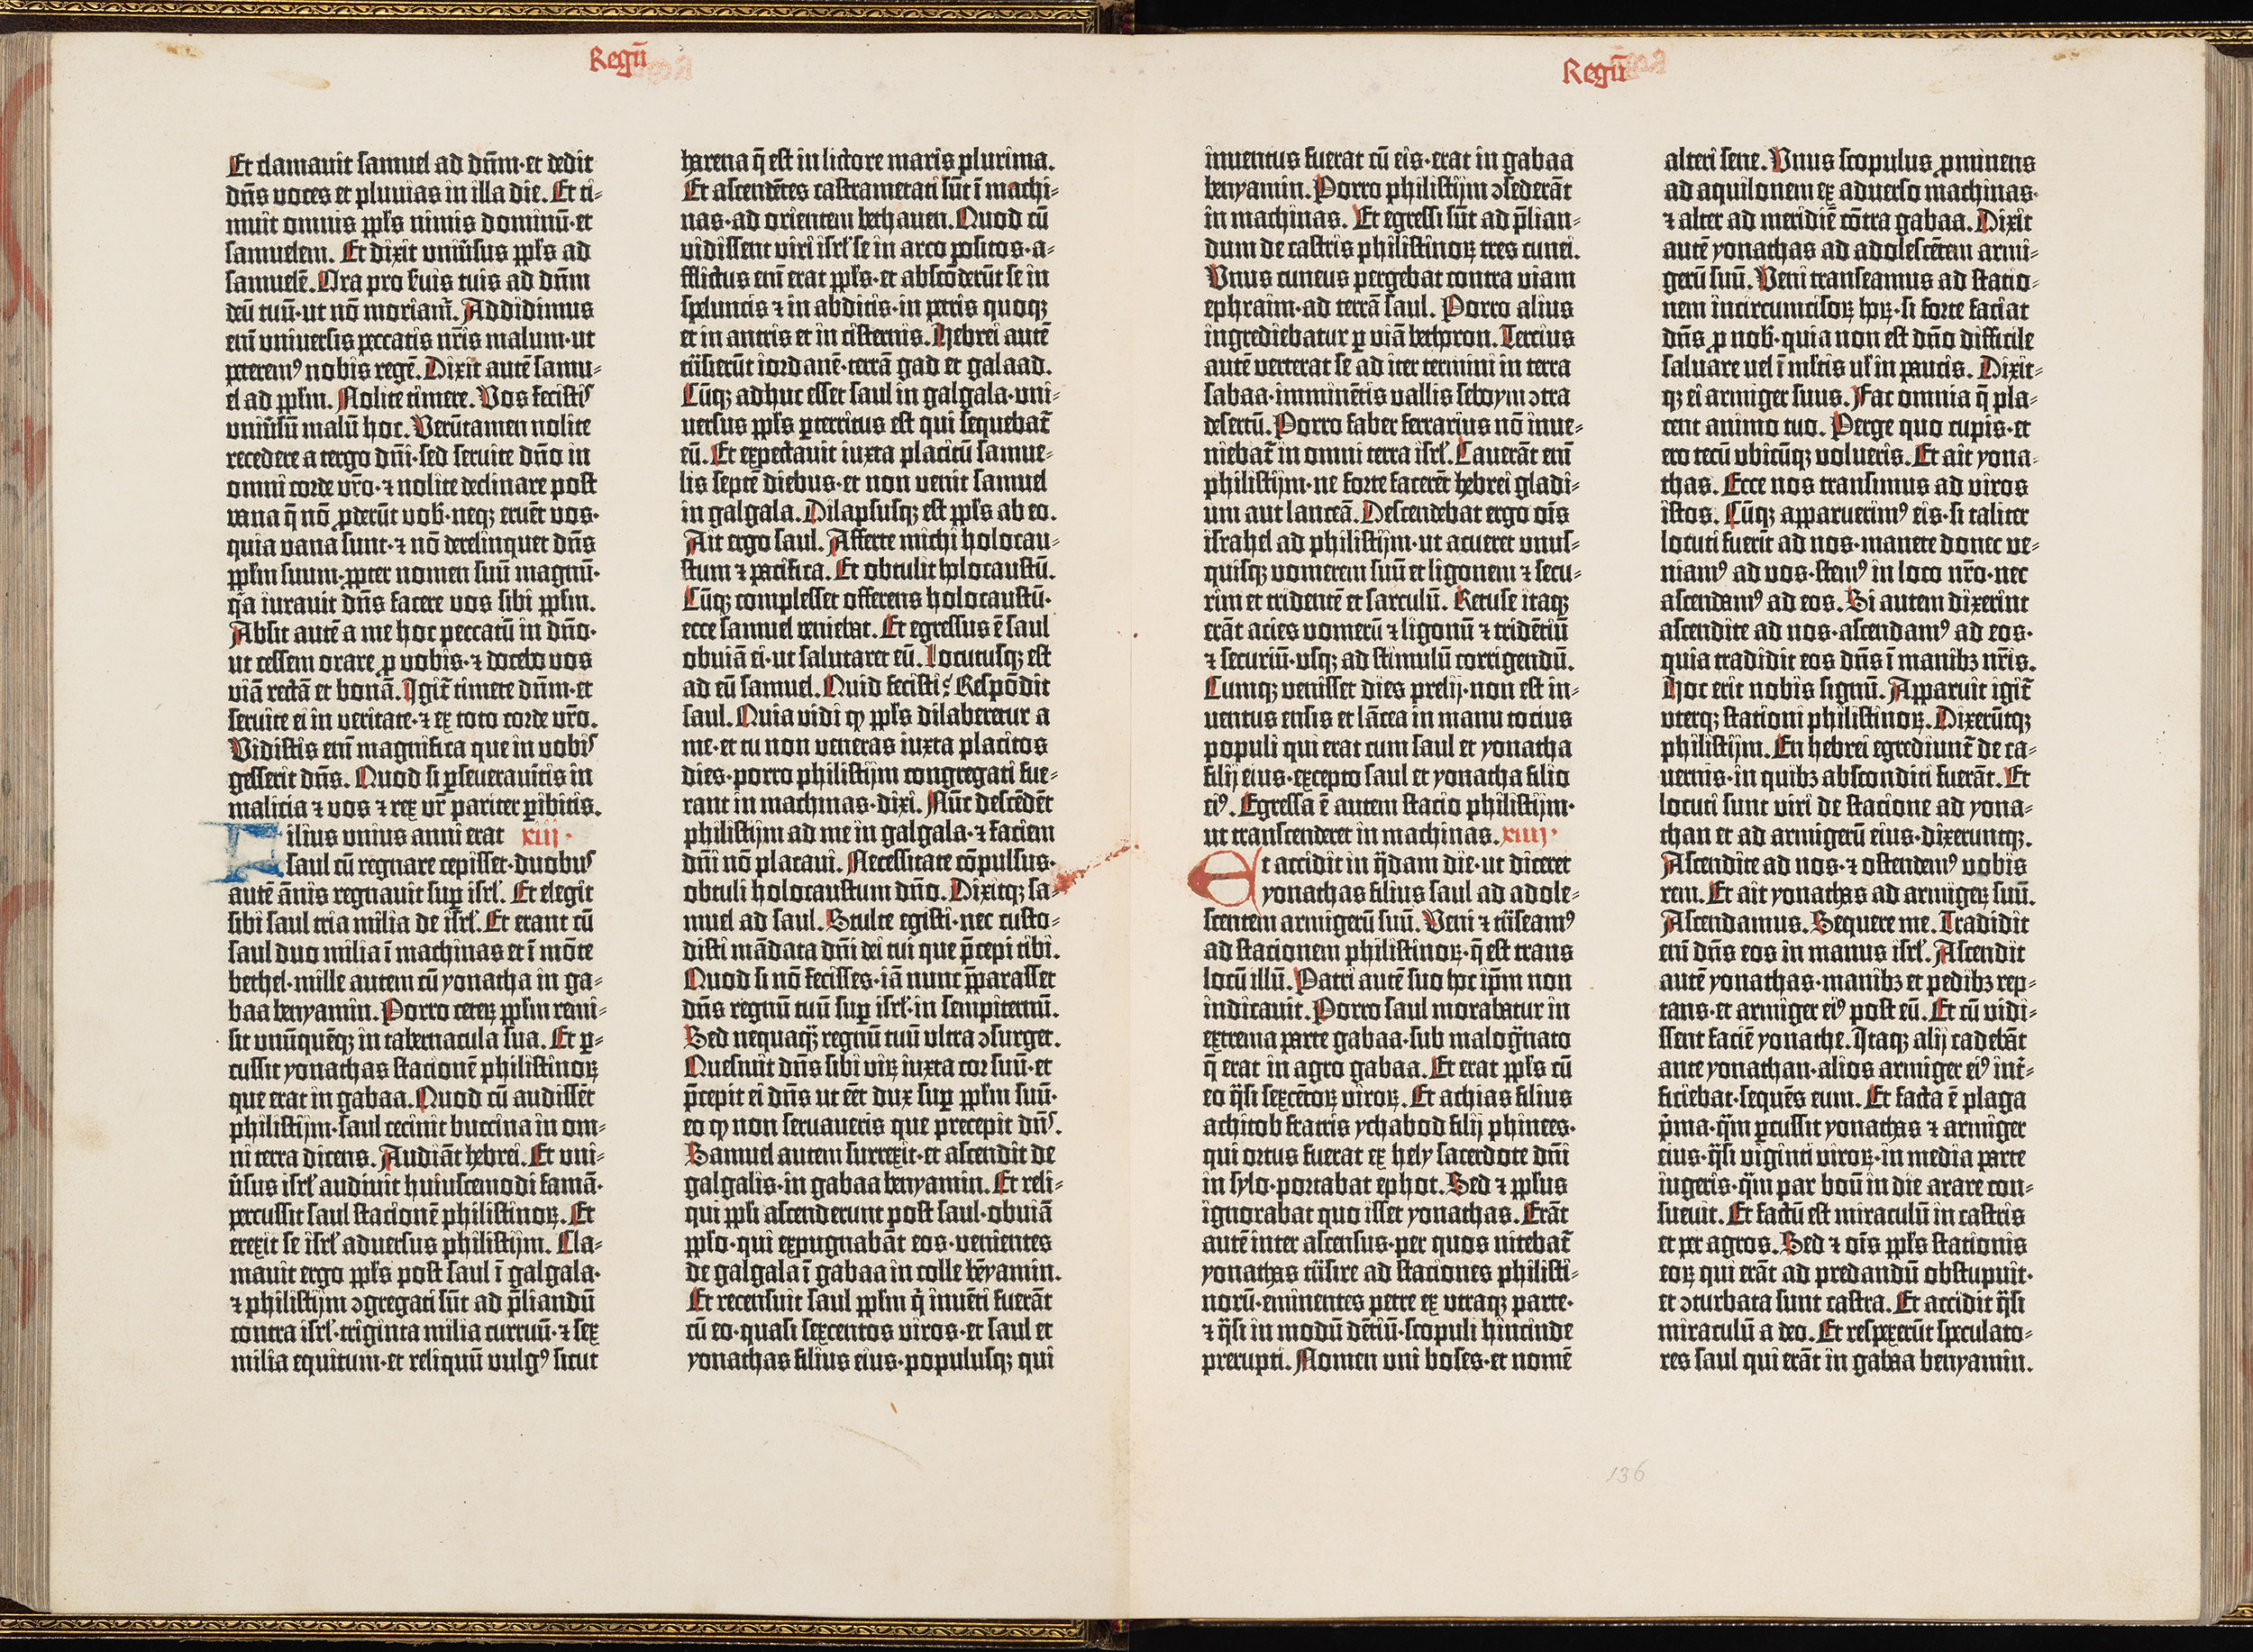 Regū
Et clamavit samuel ad dn̄m·et dedit
dn̄s voces et pluvias in illa die. Et ti=
muit omnis ppl̄s nimis dominū·et
samuelem. Et dixit univ̄sus ppl̄s ad
samuelē. Ora pro s̄uis tuis ad dn̄m
deū tuū·ut nō moriam̄. Addidimus
eni̅ universis peccatis nr̄is malum·ut
peterem⁹ nobis regē. Dixit autē samu=
el ad ppl̄m. Nolite timere. Vos fecistis
univ̄sū malū hoc. Verūtamen nolite
recedere a tergo dn̄i·sed servite dn̄o in
omni corde vr̄o·⁊ nolite declinare post
vana q̄ nō ꝓderūt vob̄·neqꝫ eruēt vos·
quia vana sunt·⁊ nō derelinquet dn̄s
ppl̄m suum·ꝓpter nomen suū magnū·
q̄a iuravit dn̄s facere vos sibi ppl̄m.
Absit autē a me hoc peccatū in dn̄o·
ut cessem orare ꝓ vobis·⁊ docebo vos
viā rectā et bonā. Igit̄ timete dn̄m·et
servite ei in veritate·⁊ ex toto corde vr̄o.
Vidistis eni̅ magnifica que in vobis
gesserit dn̄s. Quod si ꝑseveraveritis in
malicia ⁊ vos ⁊ rex vr̄ pariter ꝑibitis.
Filius unius anni erat xiii·
saul cū regnare cepisset·duobus
autē ānis regnavit suꝑ isrl̄. Et elegit
sibi saul tria milia de isrl̄. Et erant cū
saul duo milia ī machinas et ī mōte
bethel·mille autem cū yonatha in ga=
baa benyamin. Porro ceteꝝ ppl̄m remi=
sit unūquēqꝫ in tabernacula sua. Et ꝑ=
cussit yonathas stacionē philistinoꝝ
que erat in gabaa. Quod cū audissēt
philistijm·saul cecinit buccina in om=
ni terra dicens. Audiāt hebrei. Et uni=
v̄sus isrl̄ audivit huiuscemodi famā·
percussit saul stacionē philistinoꝝ. Et
erexit se isrl̄ adversus philistijm. Cla=
mavit ergo ppl̄s post saul ī galgala·
⁊ philistijm ꝯgregati sūt ad p̄liandū
contra isrl̄·triginta milia curruū·⁊ sex
milia equitum·et reliquū vulg⁹ sicut
harena q̄ est in littore maris plurima.
Et ascendētes castrametati sūt ī machi=
nas·ad orientem bethaven. Quod cū
vidissent viri isrl̄ se in arco positos·a=
fflictus eni̅ erat ppl̄s·et abscōderūt se in
speluncis ⁊ in abditis·in petris quoqꝫ
et in antris et in cisternis. Hebrei autē
trāsierūt iordanē·terrā gad et galaad.
Cūqꝫ adhuc esset saul in galgala·uni=
versus ppl̄s ꝑterritus est qui sequebat̄
eū. Et expectavit iuxta placitū samue=
lis septē diebus·et non venit samuel
in galgala. Dilapsusqꝫ est ppl̄s ab eo.
Ait ergo saul. Afferte michi holocau=
stum ⁊ pacifica. Et obtulit holocaustū.
Cūqꝫ complesset offerens holocaustū·
ecce samuel veniebat. Et egressus ē saul
obviā ei·ut salutaret eū. Locutusqꝫ est
ad eū samuel. Quid fecisti? Respōdit
saul. Quia vidi ꝙ ppl̄s dilaberetur a
me·et tu non veneras iuxta placitos
dies·porro philistijm congregati fue=
rant in machinas·dixi. Nūc descēdēt
philistijm ad me in galgala·⁊ faciem
dn̄i nō placavi. Necessitate cōpulsus·
obtuli holocaustum dn̄o. Dixitqꝫ sa=
muel ad saul. Stulte egisti·nec custo=
disti mādata dn̄i dei tui que p̄cepi tibi.
Quod si nō fecisses·iā nunc p̄parasset
dn̄s regnū tuū suꝑ isrl̄·in sempiternū.
Sed nequaq̄ꝫ regnū tuū ultra ꝯsurget.
Quesivit dn̄s sibi viꝝ iuxta cor suū·et
p̄cepit ei dn̄s ut eēt dux suꝑ ppl̄m suū·
eo ꝙ non servaveris que precepit dn̄s.
Samuel autem surrexit·et ascendit de
galgalis·in gabaa benyamin. Et reli=
qui ppl̄i ascenderunt post saul·obviā
pplo·qui expugnabāt eos·venientes
de galgala ī gabaa in colle bēyamin.
Et recensuit saul ppl̄m q̄ invēti fuerāt
cū eo·quasi sexcentos viros·et saul et
yonathas filius eius·populusqꝫ qui
Regū
inventus fuerat cū eis·erat in gabaa
benyamin. Porro philistijm ꝯsederāt
in machinas. Et egressi sūt ad p̄lian=
dum de castris philistinoꝝ tres cunei.
Unus cuneus pergebat contra viam
ephraim·ad terrā saul. Porro alius
ingrediebatur ꝑ viā bethoron. Tercius
autē verterat se ad iter termini in terra
sabaa·imminētis vallis seboym ꝯtra
desertū. Porro faber ferrarius nō inve=
niebat̄ in omni terra isrl̄. Caverāt eni̅
philistijm·ne forte facerēt hebrei gladi=
um aut lanceā. Descendebat ergo oīs
israhel ad philistijm·ut acueret unus=
quisqꝫ vomerem suū et ligonem ⁊ secu=
rim et tridentē et sarculū. Retuse itaqꝫ
erāt acies vomerū ⁊ ligonū ⁊ tridētiū
⁊ securiū·usqꝫ ad stimulū corrigendū.
Cumqꝫ venisset dies prelij·non est in=
ventus ensis et lācea in manu tocius
populi qui erat cum saul et yonatha
filij eius·excepto saul et yonatha filio
ei⁹. Egressa ē autem stacio philistijm·
ut transcenderet in machinas. xiiii·
Et accidit in q̄dam die·ut diceret
yonathas filius saul ad adole=
scentem armigerū suū. Veni ⁊ trāseam⁹
ad stacionem philistinoꝝ·q̄ est trans
locū illū. Patri autē suo hoc ip̄m non
indicavit. Porro saul morabatur in
extrema parte gabaa·sub malogranato
q̄ erat in agro gabaa. Et erat ppl̄s cū
eo q̄si sexcētoꝝ viroꝝ. Et achias filius
achitob fratris ychabod filij phinees·
qui ortus fuerat ex hely sacerdote dn̄i
in sylo·portabat ephot. Sed ⁊ pplus
ignorabat quo isset yonathas. Erāt
autē inter ascensus·per quos nitebat̄
yonathas trāsire ad staciones philisti=
norū·eminentes petre ex utraqꝫ parte·
⁊ q̄si in modū dētiū·scopuli hincinde
prerupti. Nomen uni boses·et nomē
alteri sene. Unus scopulus ꝓminens
ad aquilonem ex adverso machinas·
⁊ alter ad meridiē cōtra gabaa. Dixit
autē yonathas ad adolescētem armi=
gerū suū. Veni transeamus ad statio=
nem incircumcisoꝝ hoꝝ·si forte faciat
dn̄s ꝓ nob̄·quia non est dn̄o difficile
salvare vel ī ml̄tis vl̄ in paucis. Dixit=
qꝫ ei armiger suus. Fac omnia q̄ pla=
cent animo tuo. Perge quo cupis·et
ero tecū ubicūqꝫ volueris. Et ait yona=
thas. Ecce nos transimus ad viros
istos. Cūqꝫ apparuerim⁹ eis·si taliter
locuti fuerīt ad nos·manete donec ve=
niam⁹ ad vos·stem⁹ in loco nr̄o·nec
ascendam⁹ ad eos. Si autem dixerint
ascendite ad nos·ascendam⁹ ad eos·
quia tradidit eos dn̄s ī manibꝫ nr̄is.
Hoc erit nobis signū. Apparuit igit̄
uterqꝫ stationi philistinoꝝ. Dixerūtqꝫ
philistijm. En hebrei egrediunt̄ de ca=
vernis·in quibꝫ absconditi fuerāt. Et
locuti sunt viri de stacione ad yona=
than et ad armigerū eius·dixeruntqꝫ.
Ascendite ad nos·⁊ ostendem⁹ vobis
rem. Et ait yonathas ad armigeꝝ suū.
Ascendamus. Sequere me. Tradidit
eni̅ dn̄s eos in manus isrl̄. Ascendit
autē yonathas·manibꝫ et pedibꝫ rep=
tans·et armiger ei⁹ post eū. Et cū vidi=
ssent faciē yonathe. Itaqꝫ alij cadebāt
ante yonathan·alios armiger ei⁹ int̄=
ficiebat·sequēs eum. Et facta ē plaga
p̄ma·q̄m ꝑcussit yonathas ⁊ armiger
eius·q̄si viginti viroꝝ·in media parte
iugeris·q̄m par boū in die arare con=
suevit. Et factū est miraculū in castris
et per agros. Sed ⁊ oīs ppl̄s stationis
eoꝝ qui erāt ad predandū obstupuit·
et ꝯturbata sunt castra. Et accidit q̄si
miraculū a deo. Et respexerūt speculato=
res saul qui erāt in gabaa benyamin.
136